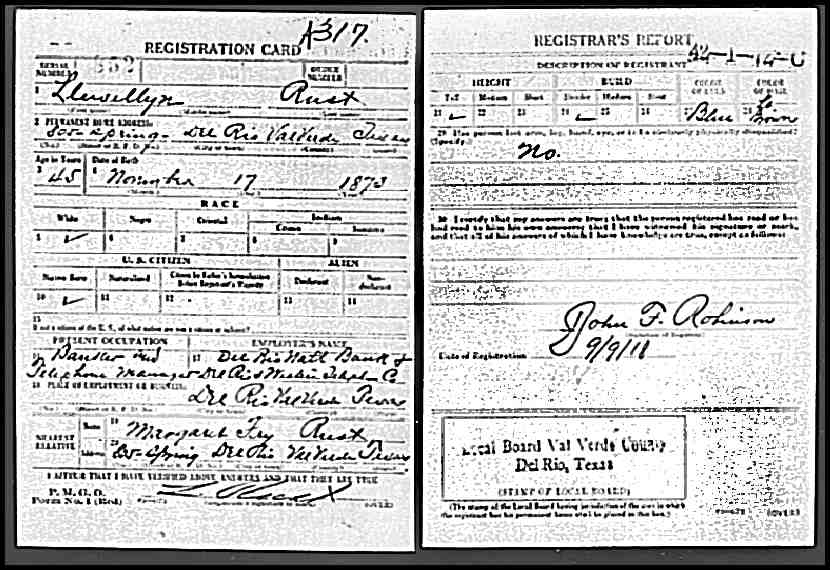 REGISTRATION CARD A317.
SERIAL NUMBER 552 ORDER NUMBER
1 Llewellyn Rust
2 PERMANENT HOME ADDRESS:
Spring Del Rio Val Verde Texas
Age in Years Date of Birth
3 45 4 November 17 1873
RACE
White Negro Oriental Indian
Citizen Noncitizen
5 ✓ 6 7 8 9
U. S. CITIZEN ALIEN
Native Born Naturalized Citizen by Father's Naturalization Before Registrant's Majority Declarant Non-declarant
10 ✓ 11 12 13 14
15
If not a citizen of the U. S., of what nation are you a citizen or subject?
PRESENT OCCUPATION EMPLOYER'S NAME
16 Banker and 17 Del Rio Natl Bank &
Telephone Manager Del Rio & Co
18 PLACE OF EMPLOYMENT OR BUSINESS:
Del Rio Val Verde Texas
NEAREST RELATIVE
Name 19 Margaret Rust
Address 20 Spring Del Rio Val Verde Texas
I AFFIRM THAT I HAVE VERIFIED ABOVE ANSWERS AND THAT THEY ARE TRUE
P. M. G. O.
Form No. 1 (Red) (OVER)
REGISTRAR'S REPORT
42-1-14-C
DESCRIPTION OF REGISTRANT
HEIGHT BUILD COLOR OF EYES COLOR OF HAIR
Tall Medium Short Slender Medium Stout
21 ✓ 22 23 24 ✓ 25 26 27 Blue 28 Lt. Brown
29 Has person lost arm, leg, hand, eye, or is he obviously physically disqualified?
(Specify.) No.
30 I certify that my answers are true; that the person registered has read or has
had read to him his own answers; that I have witnessed his signature or mark,
and that all of his answers of which I have knowledge are true, except as follows:
John F. Robinson
Date of Registration 9/9/18
Local Board Val Verde County
Del Rio, Texas
(STAMP OF LOCAL BOARD)
(The stamp of the Local Board having jurisdiction of the area in which
the registrant has his permanent home shall be placed in this box.)
(OVER)